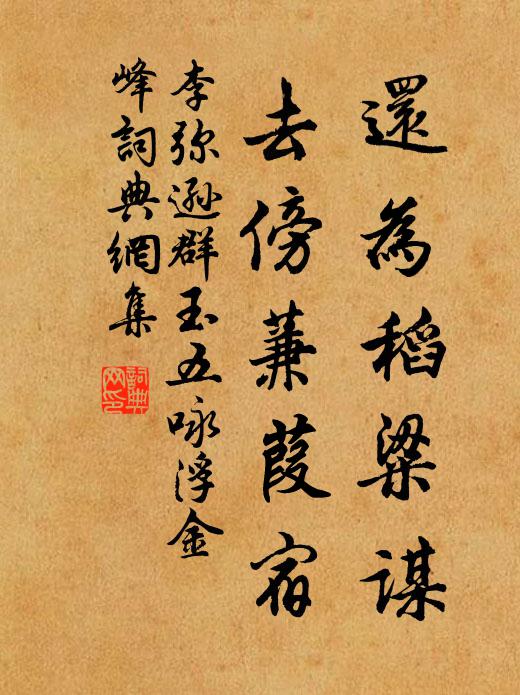 還為稻粱謀
去傍蒹葭宿
李弥遜群玉五咏浮金
峰詞典網集
詞典网印